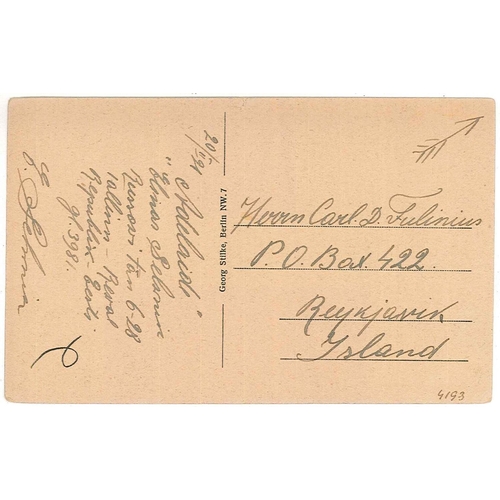 20/I 24
"Adelaid"
Elmar Lehmin
Kunos tän 6-28
Tallinn - Reval
Republik Eesti
gl. 3981.
E. Lehmin
Georg Stilke, Berlin NW. 7
Herrn Carl D. Tulinius
P.O. Box 422.
Reykjavik
Island
4193